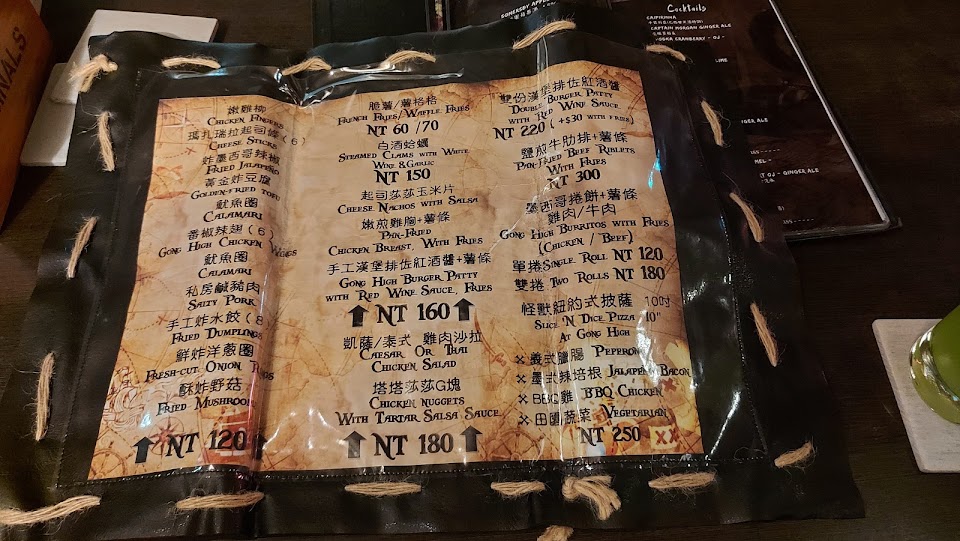 嫩雞柳
Chicken Fingers
瑪扎瑞拉起司條(6)
Cheese Sticks
炸墨西哥辣椒
Fried Jalapeño
黃金炸豆腐
Golden-fried tofu
魷魚圈
Calamari
番椒辣翅(6)
Gong High Chicken Wings
魷魚圈
Calamari
私房鹹豬肉
Salty Pork
手工炸水餃(8)
Fried Dumplings
鮮炸洋蔥圈
Fresh-cut Onion Rings
酥炸野菇
Fried Mushroom
NT 120
脆薯/薯格格
French Fries/Waffle Fries
NT 60 /70
白酒蛤蠣
Steamed Clams with White
Wine & Garlic
NT 150
起司莎莎玉米片
Cheese Nachos with Salsa
嫩煎雞胸+薯條
Pan-Fried
Chicken Breast, With Fries
手工漢堡排佐紅酒醬+薯條
Gong High Burger Patty
with Red Wine Sauce, Fries
NT 160
凱薩/泰式 雞肉沙拉
Caesar Or Thai
Chicken Salad
塔塔莎莎G塊
Chicken nuggets
With Tartar Salsa Sauce
NT 180
雙份漢堡排佐紅酒醬
Double Burger Patty
with Red Wine Sauce
NT 220 (+$30 with fries)
鹽煎牛肋排+薯條
Pan-Fried Beef Riblets
With Fries
NT 300
墨西哥捲餅+薯條
雞肉/牛肉
Gong High Burritos with Fries
(Chicken / Beef)
單捲Single Roll NT 120
雙捲 Two Rolls NT 180
怪獸紐約式披薩 10吋
Slice 'N Dice Pizza 10"
At Gong High
義式臘腸 Peperoni
墨式辣培根 Jalapeño Bacon
BBQ雞 BBQ Chicken
田園蔬菜 Vegetarian
NT 250
Cocktails
Caipirinha
Captain Morgan Ginger Ale
Vodka Cranberry - OJ -
Lime
Ginger Ale
OJ - Ginger Ale
Somersby Apple